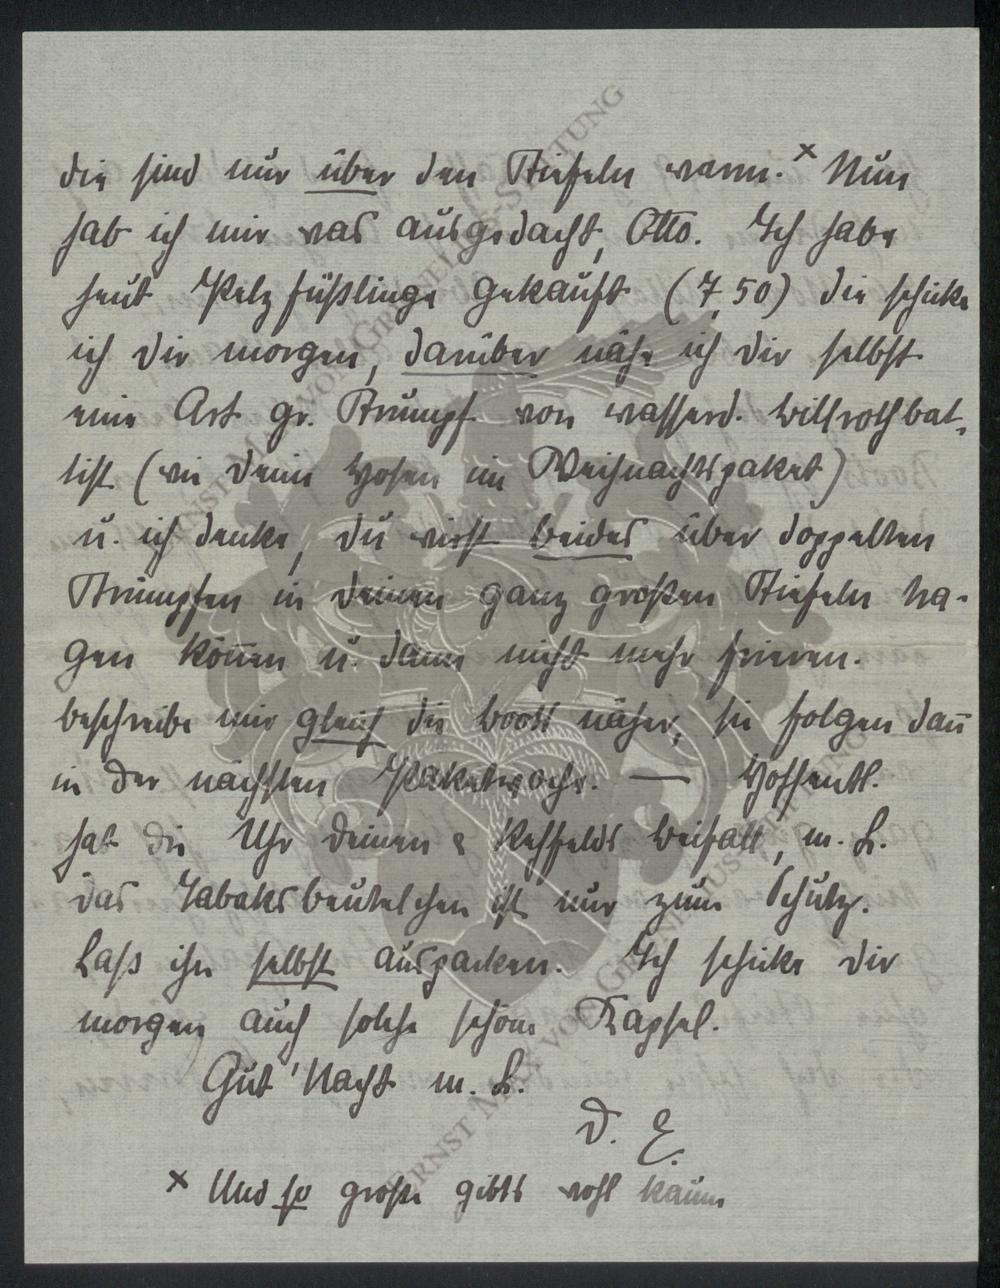 die sind nur über den Stiefeln warm.× Nun
hab ich mir was ausgedacht, Otto. Ich habe
heut Pelzfüßlinge gekauft (7,50) die schicke
ich dir morgen, darüber nähe ich dir selbst
eine Art gr. Strumpf von wasserd. Billrothbat-
tist (wie deine Hosen im Weihnachtspaket)
u. ich denke, du wirst beides über doppelten
Strümpfen in deinen ganz großen Stiefeln tra-
gen können u. dann nicht mehr frieren.
Beschreibe mir gleich die Boots näher, sie folgen dann
in der nächsten Paketwoche. — Hoffentl.
hat die Uhr deinen & Rehfelds Beifall, m. L.
das Tabaksbeutelchen ist nur zum Schutz.
Lass ihn selbst auspacken. Ich schicke dir
morgen auch solche schöne Kapsel.
Gut' Nacht m. L.
D. E.
× Und so große gibts wohl kaum
ERNST MAX VON GRUNELIUS-STIFTUNG
ERNST MAX VON GRUNELIUS-STIFTUNG